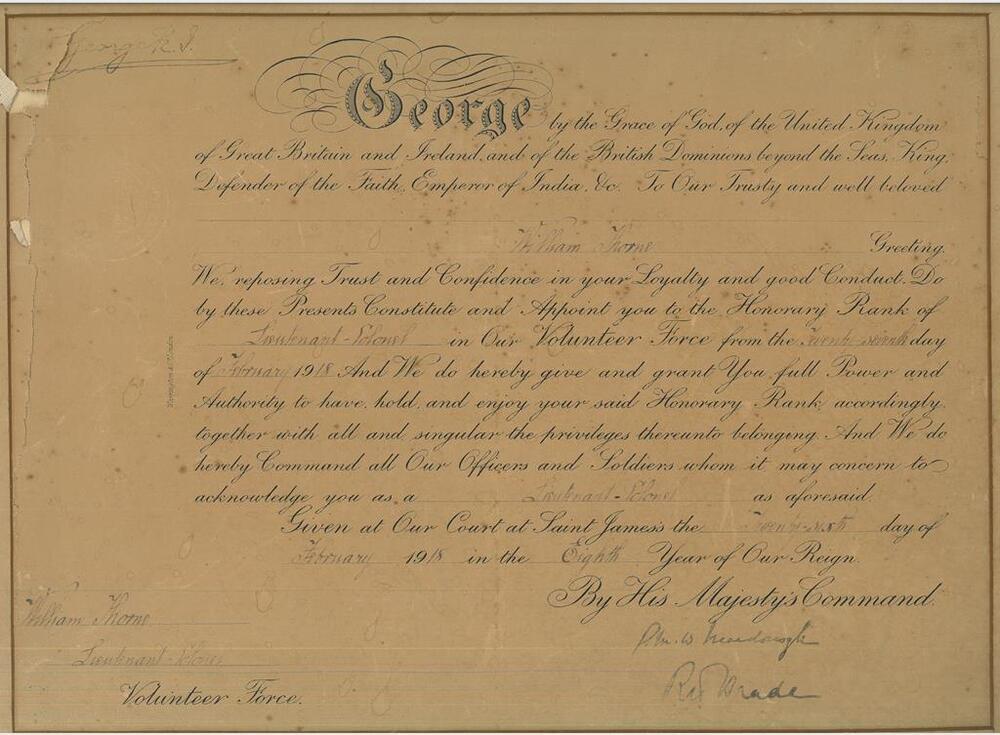 George R.I.
George by the Grace of God, of the United Kingdom
of Great Britain and Ireland, and of the British Dominions beyond the Seas, King,
Defender of the Faith, Emperor of India, &c. To Our Trusty and well beloved
William Thorne Greeting.
We, reposing Trust and Confidence in your Loyalty and good Conduct, Do
by these Presents Constitute and Appoint you to the Honorary Rank of
Lieutenant-Colonel in Our Volunteer Force from the Twenty seventh day
of February 1918 And We do hereby give and grant You full Power and
Authority to have, hold, and enjoy your said Honorary Rank accordingly,
together with all and singular the privileges thereunto belonging. And We do
hereby Command all Our Officers and Soldiers whom it may concern to
acknowledge you as a Lieutenant-Colonel as aforesaid.
Given at Our Court at Saint James's the Twenty-sixth day of
February 1918 in the Eighth Year of Our Reign.
By His Majesty's Command.
William Thorne
Lieutenant-Colonel
Volunteer Force.